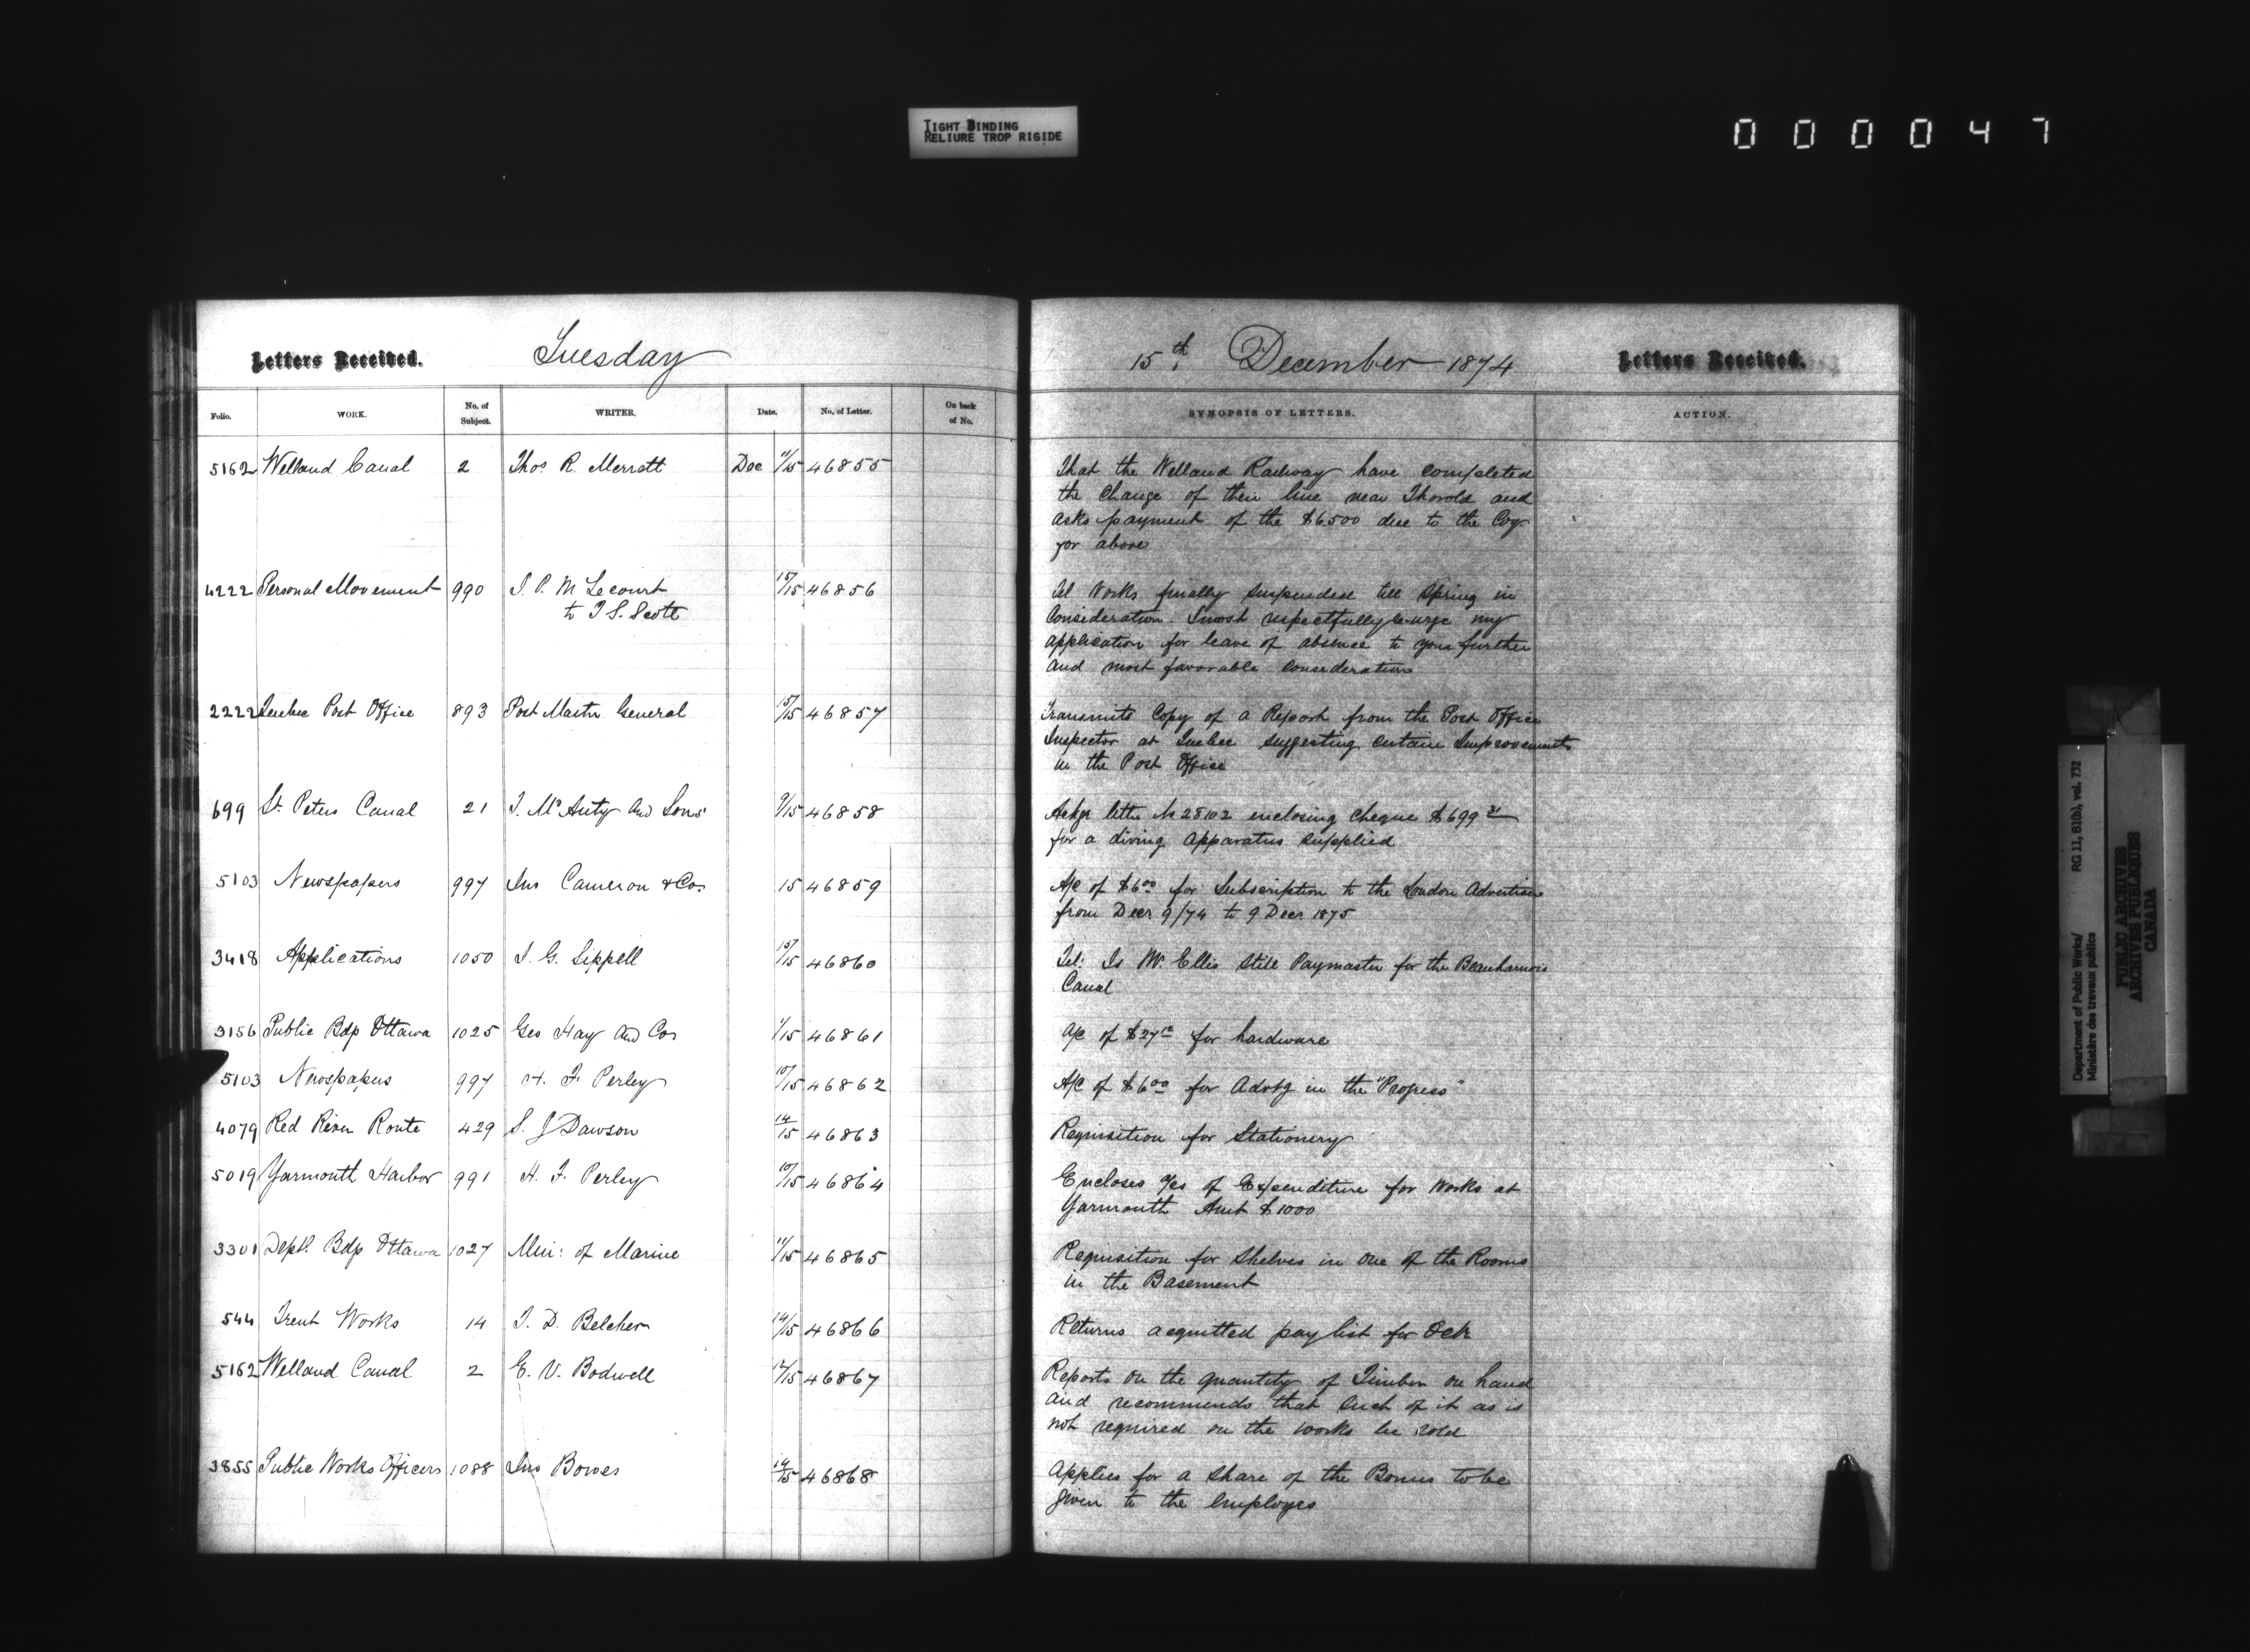 TIGHT BINDING
RELIURE TROP RIGIDE
000047
Letters Received.
Tuesday
Folio.
WORK.
No. of Subject.
WRITER.
Date.
No. of Letter.
On back of No.
5162 Welland Canal 2 Thos R. Merratt Dec 11/15 46855
4222 Personal Movement 990 J. P. M Lecourt 15/15 46856
to T S. Scott
2222 Quebec Post Office 893 Post Master General 15/15 46857
699 St. Peters Canal 21 T. McAvity and Sons 9/15 46858
5103 Newspapers 997 Jno Cameron & Co. 15 46859
3418 Applications 1050 J. G. Sippell 15/15 46860
3156 Public Bdgs Ottawa 1025 Geo Hay and Co. 1/15 46861
5103 Newspapers 997 H. F. Perley 10/15 46862
4079 Red River Route 429 S. J Dawson 14/15 46863
5019 Yarmouth Harbor 991 H. F. Perley 10/15 46864
3301 Deptl. Bdgs Ottawa 1027 Min: of Marine 11/15 46865
544 Trent Works 14 T. D. Belcher 14/15 46866
5162 Welland Canal 2 E. V. Bodwell 12/15 46867
3855 Public Works Officers 1088 Jno Bowes 14/15 46868
15th December 1874
Letters Received.
SYNOPSIS OF LETTERS.
ACTION.
That the Welland Railway have completed
the change of their line near Thorold and
asks payment of the $6.500 due to the Coy.
for above
Tel Works finally suspended till Spring in
consideration. I most respectfully re-urge my
application for leave of absence to your further
and most favorable consideration
Transmits Copy of a Report from the Post Office
Inspector at Quebec suggesting certain Improvements
in the Post Office
Ackgs letter No 28102 enclosing cheque $699 31
for a diving apparatus supplied
A/c of $6 00 for Subscription to the London Advertiser
from Decr. 9/74 to 9 Decr. 1875
Tel: Is Mr. Ellis still Paymaster for the Beauharnois
Canal
A/c of $27 12 for hardware
A/c of $6 00 for Advtg in the "Progress"
Requisition for Stationery
Encloses a/cs of Expenditure for Works at
Yarmouth Amt $1000
Requisition for Shelves in one of the Rooms
in the Basement
Returns acquitted pay list for Octr
Reports on the quantity of Timber on hand
and recommends that such of it as is
not required on the works be sold
Applies for a share of the Bonus to be
given to the employes
Department of Public Works/
Ministère des travaux publics
RG 11, B1(b), vol. 732
PUBLIC ARCHIVES
ARCHIVES PUBLIQUES
CANADA